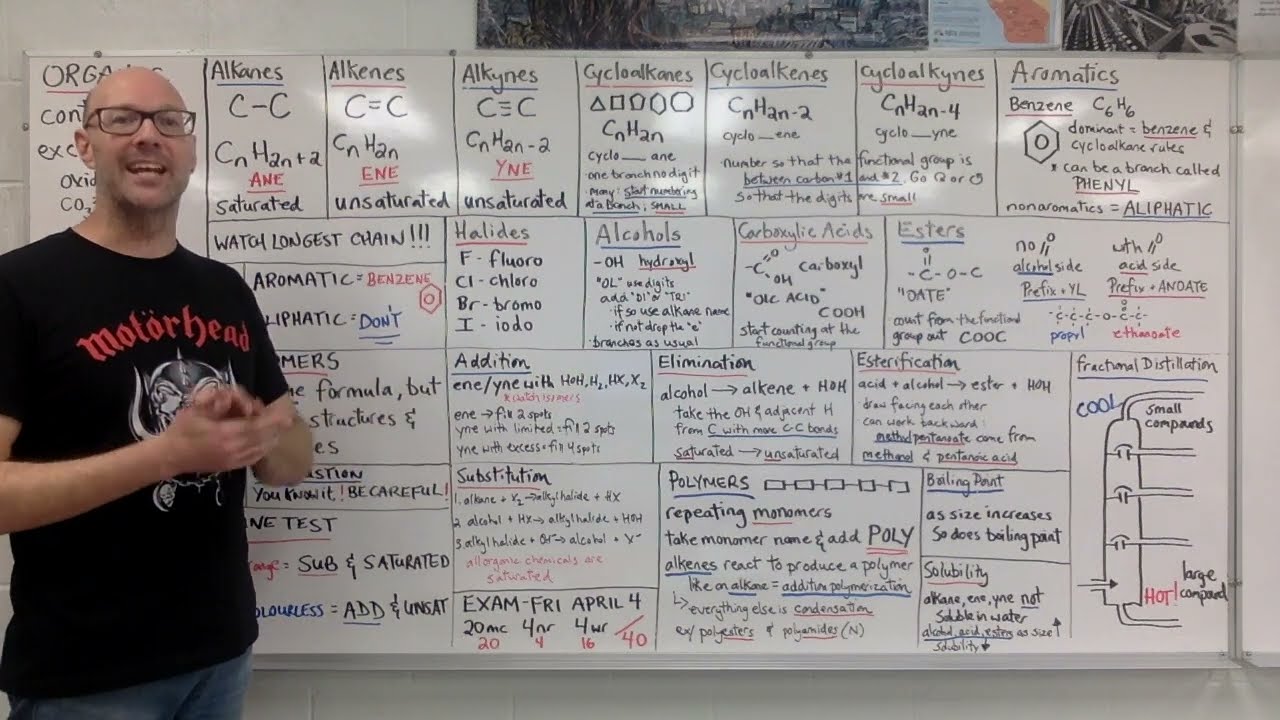 ORGA
cont
exc
Oxid
CO
Alkanes
C-C
CnH2n+2
ANE
saturated
Alkenes
C=C
CnH2n
ENE
unsaturated
Alkynes
C≡C
CnH2n-2
YNE
unsaturated
Cycloalkanes
CnH2n
cyclo___ane
·one branch no digit
·Many: start numbering
at a branch, SMALL
Cycloalkenes
CnH2n-2
cyclo___ene
Cycloalkynes
CnH2n-4
cyclo___yne
number so that the functional group is
between carbon #1 and #2. Go ↻ or ↺
so that the digits are small
Aromatics
Benzene C6H6
dominant = benzene &
cycloalkane rules
* can be a branch called
PHENYL
nonaromatics = ALIPHATIC
WATCH LONGEST CHAIN!!!
AROMATIC = BENZENE
LIPHATIC = DON'T
Halides
F - fluoro
Cl - chloro
Br - bromo
I - iodo
Alcohols
-OH hydroxyl
"OL" use digits
add "DI" or "TRI"
·if so use alkane name
·if not drop the "e"
·branches as usual
Carboxylic Acids
-C O OH carboxyl
"OIC ACID"
COOH
start counting at the
functional group
Esters
O
-C-O-C
"OATE"
count from the functional
group out COOC
no //O
alcohol side
Prefix + YL
with //O
acid side
Prefix + ANOATE
O
-C-C-C-O-C-C-
propyl
ethanoate
OMERS
me formula, but
structures &
es
Addition
ene/yne with HOH, H2, HX, X2
*watch isomers
ene → fill 2 spots
yne with limited = fill 2 spots
yne with excess = fill 4 spots
Elimination
alcohol → alkene + HOH
take the OH & adjacent H
from C with more C-C bonds
saturated → unsaturated
Esterification
acid + alcohol → ester + HOH
·draw facing each other
·can work backward:
methyl pentanoate came from
methanol & pentanoic acid
fractional Distillation
COOL
small
compounds
HOT!
large
compound
USTION
YOU KNOW IT! BE CAREFUL!
INE TEST
range = SUB & SATURATED
OLOURLESS = ADD & UNSAT
Substitution
1. alkane + X2 → alkyl halide + HX
2. alcohol + HX → alkyl halide + HOH
3. alkyl halide + OH- → alcohol + X-
all organic chemicals are
saturated
EXAM-FRI APRIL 4
20mc 4nr 4wr /40
20 4 16
POLYMERS
repeating monomers
take monomer name & add POLY
alkenes react to produce a polymer
like an alkane = addition polymerization
↳ everything else is condensation
ex/ polyesters & polyamides (N)
Boiling Point
as size increases
So does boiling point
Solubility
alkane, ene, yne not
soluble in water
alcohol, acid, esters as size ↑
solubility ↓
motörhead